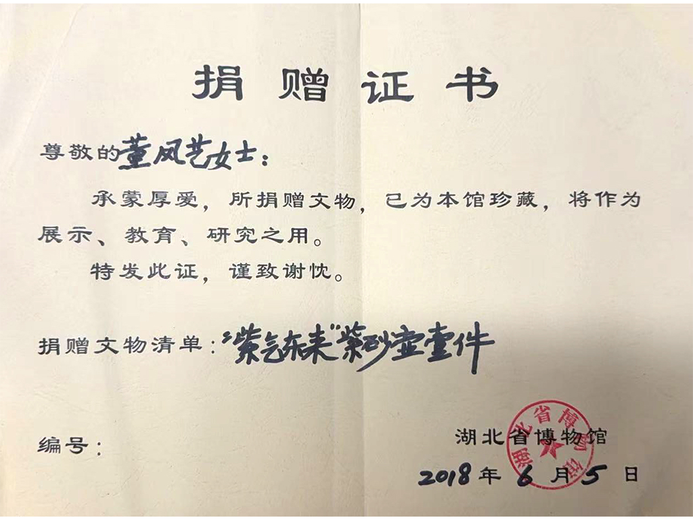 捐赠证书
尊敬的董凤艺女士：
承蒙厚爱，所捐赠文物，已为本馆珍藏，将作为
展示、教育、研究之用。
特发此证，谨致谢忱。
捐赠文物清单：“紫气东来”紫砂壶壹件
编号：
湖北省博物馆
湖北省博物馆
2018年6月5日